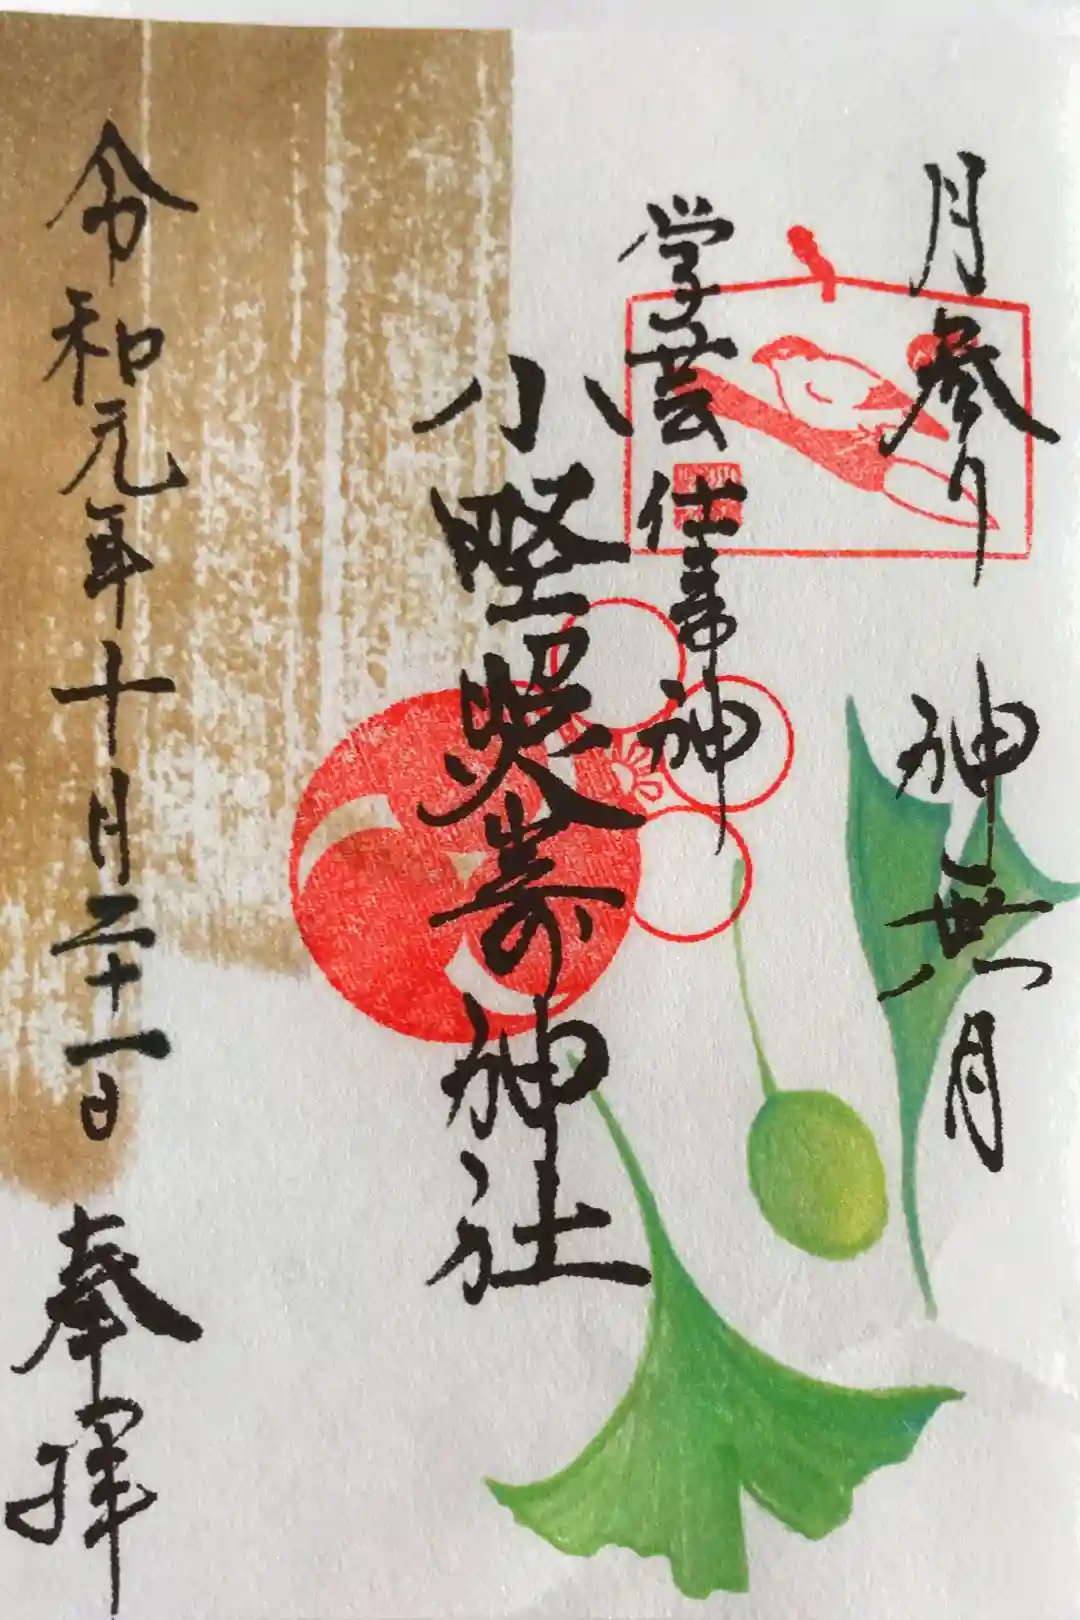 月参り 神無月
学芸 仕事神
小野照嵜神社
令和元年十月二十一日 奉拝